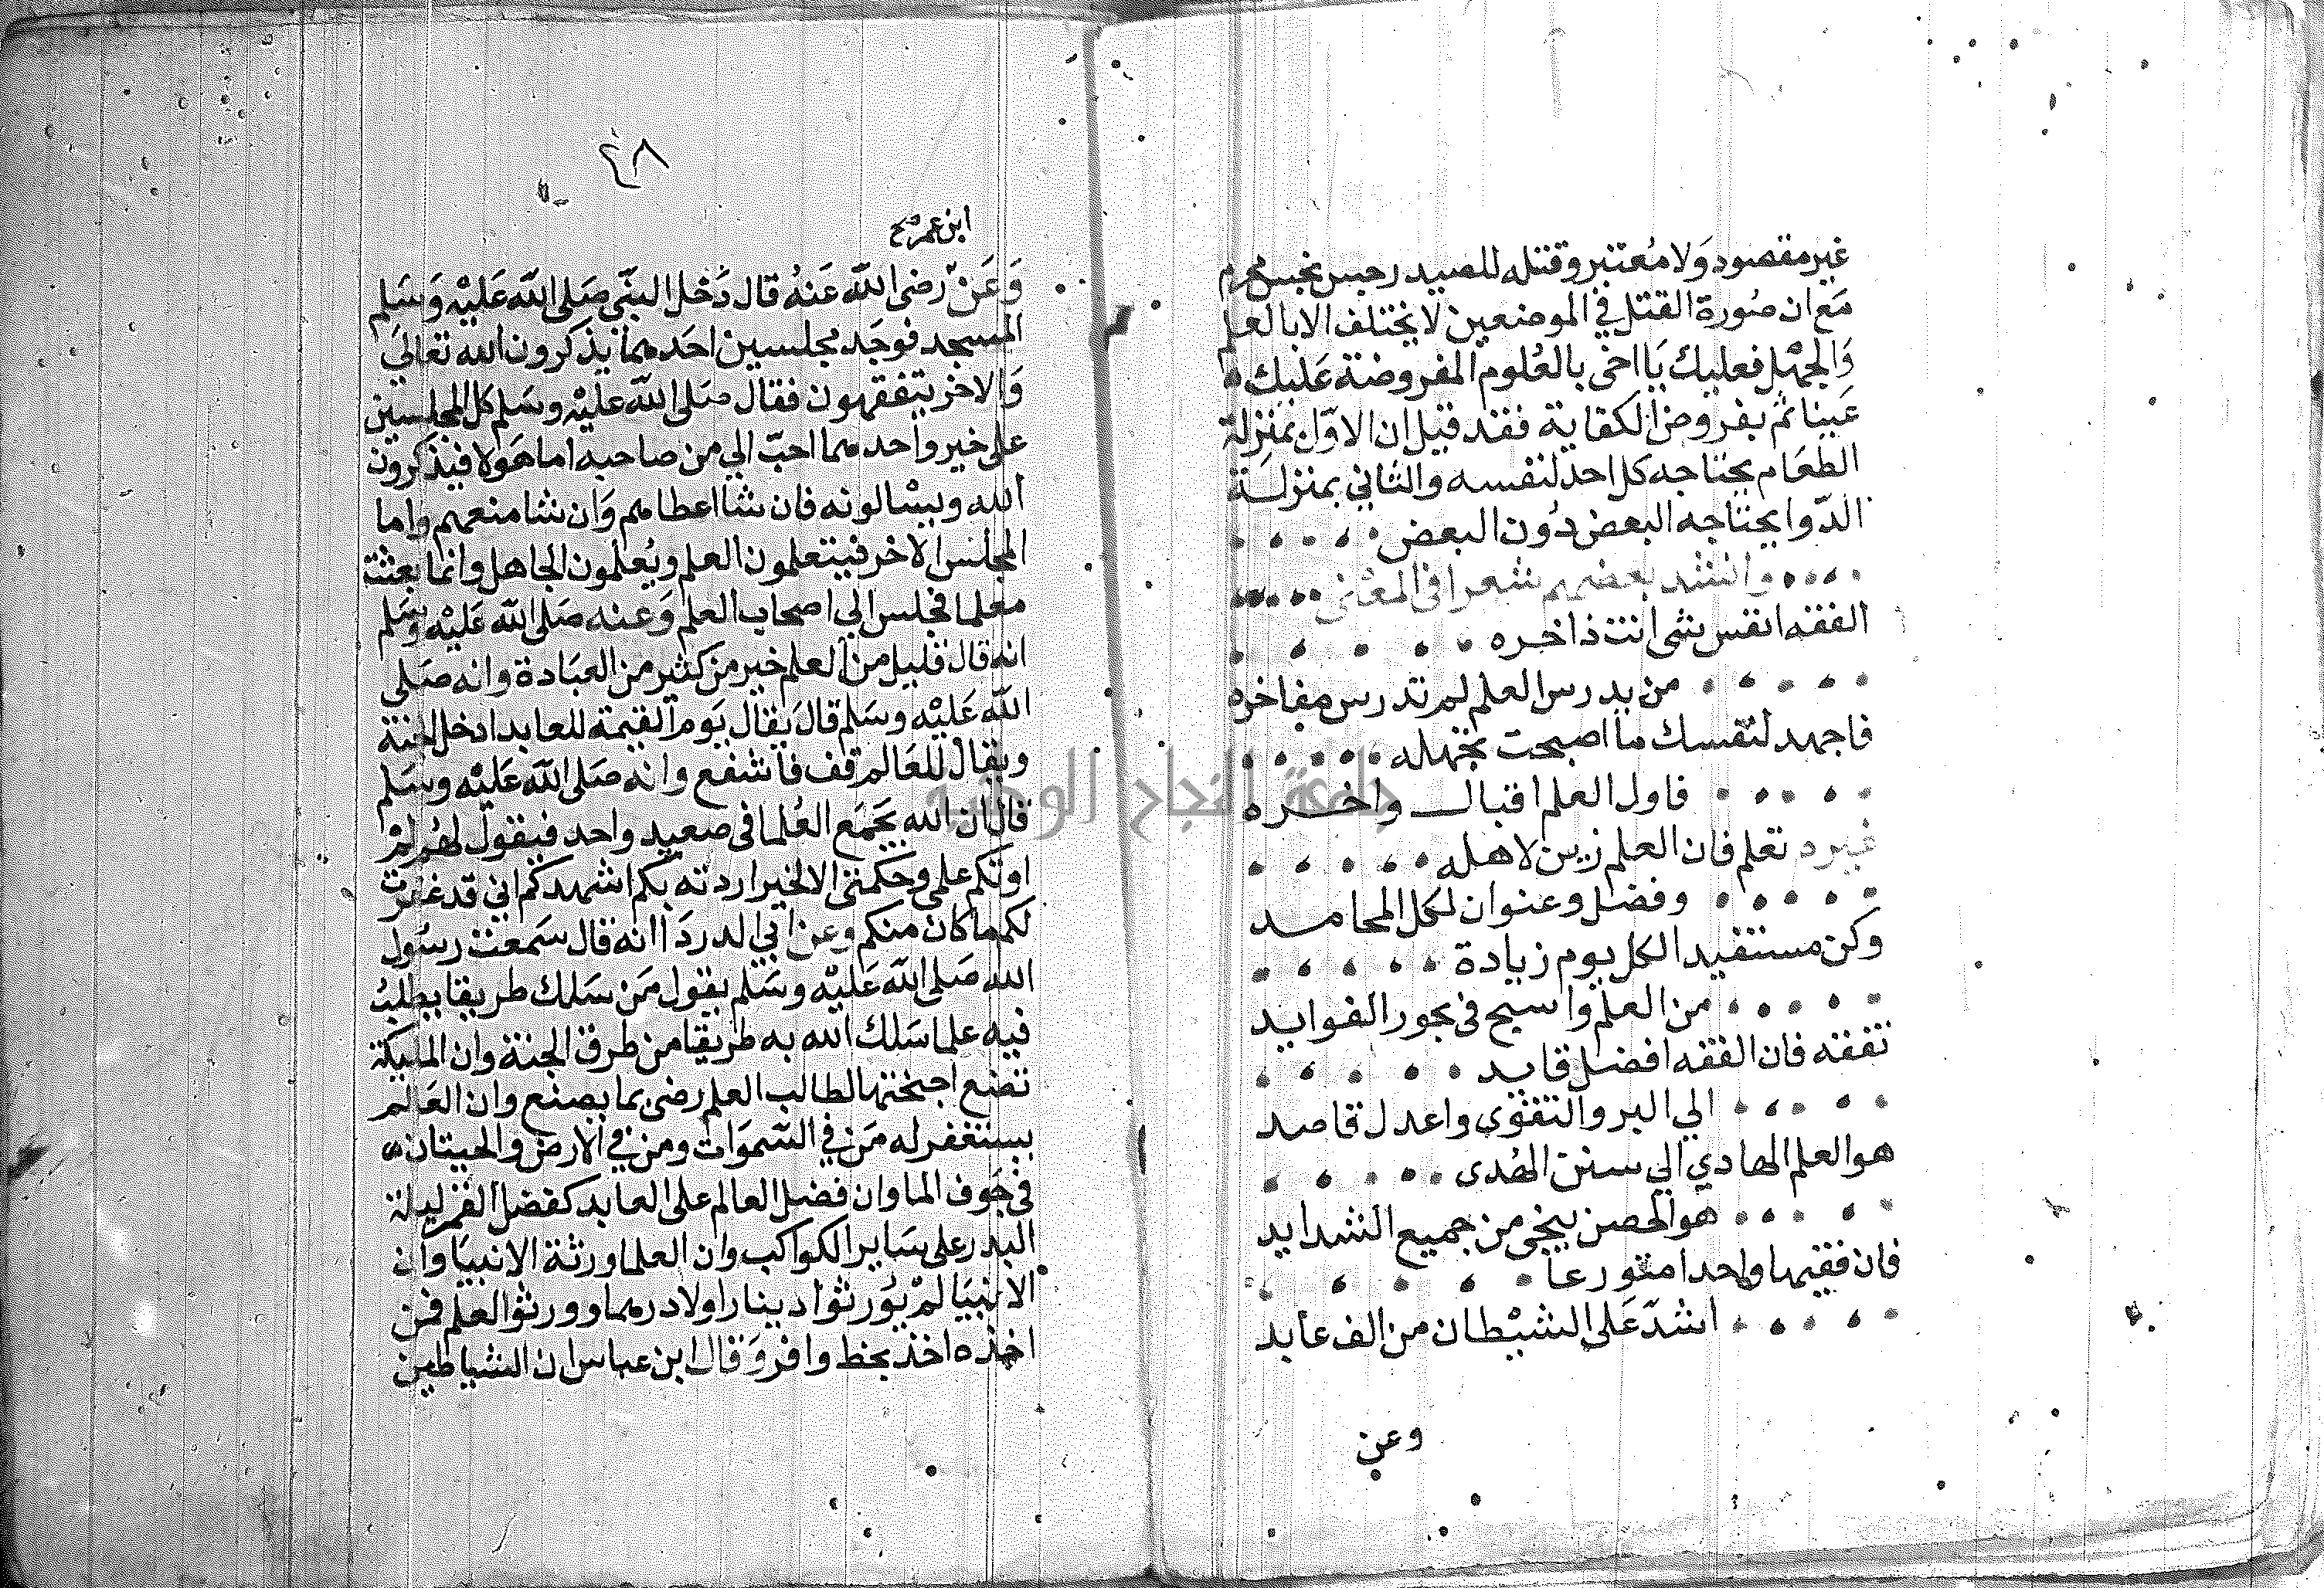 غير مقصود وَلا مُعتبر وقتله للصيد رجس نجس محرم
مَع ان صُورة القتل في الموضعين لا يختلف الا بالعلم
وَالجهْل فعليك يَا اخى بالعُلوم المفروضة عَليك
عَينا ثم بفروض الكفاية فقد قيل ان الاوّل بمنزلة
الطعَام يحتاجه كل احد لنفسه والثاني بمنزلَة
الدّوا يحتاجه البعض دُون البعض
وانشد بعضهم شعرا فى المعْنى
الفقه انفس شى انت ذاخره
من يدرس العلم لم تدرس مفاخره
فاجهد لنفسك ما اصبحت تجهله
فاول العلم اقبال واخره
غيره تعلم فان العلم زين لاهله
وفضل وعنوان لكل المحامد
وكن مستفيدا لكل يوم زيادة
من العلم واسبح فى بحور الفوايد
تفقه فان الفقه افضل قايد
الي البر والتقوى واعدل قاصد
هو العلم الهادي الي سنن الهُدى
هو الحصن ينجى من جميع الشدايد
فان فقيها واحدا متورعا
اشدّ عَلى الشيْطان من الف عابد
وعن
٤٨
ابن عمر صح
وَعَنْ رَضى الله عَنهُ قال دَخل النبّي صَلى الله عَليْه وَسَلم
المسجد فوجَد مجلسين احَدهما يذكرون الله تعالىَ
وَالاخر يتفقهون فقال صَلى الله عليْه وسَلم كل المجلسين
على خير واحدهما احبّ الي من صاحبه اما هَولا فيذكرون
الله ويسْالونه فان شا اعطاهم وَان شا منعهم واما
المجلس الاخر فيتعلمون العلم ويُعلمون الجاهل وانما بعثت
معلما فجلس الي اصحاب العلم وَعنه صَلى الله عَليْه وسَلم
انه قال قليل من العلم خير من كثير من العبَادة وانه صَلى
الله عَليْه وسَلم قالَ يقال يَوم القيمة للعابد ادخل الجنة
ويقال للعَالم قف فاشفع وانه صَلى الله عَليْه وسَلم
قال ان الله يجمَع العُلما فى صعيد واحد فيقول لهُم لمْ
اوتكم علمى وحكمتى الا لخير اردته بكم اشهدكم اني قد غفرت
لكم ما كان منكم وعن ابي الدردَا انه قال سَمعت رسُول
الله صَلى الله عَليْه وسَلم يقول مَن سَلك طريقا يطلبُ
فيه علما سَلك الله به طريقا من طرق الجنة وان المليكة
تضع اجنحتها لطالب العلم رضى بما يصنع وان العَالم
يستغفر له مَن في السّموَات ومن في الارض والحيتان
فى جَوف الما وان فضل العالم على العابد كفضل القمر ليلة
البدر على سَاير الكواكب وان العلما ورثة الانبيَا وان
الانبيَا لمْ يوَرثوا دينارا ولا درهما وورثوا العلم فمن
اخذه اخذ بحظ وافر وَقال ابن عباس ان الشياطين
جامعة النجاح الوطنية